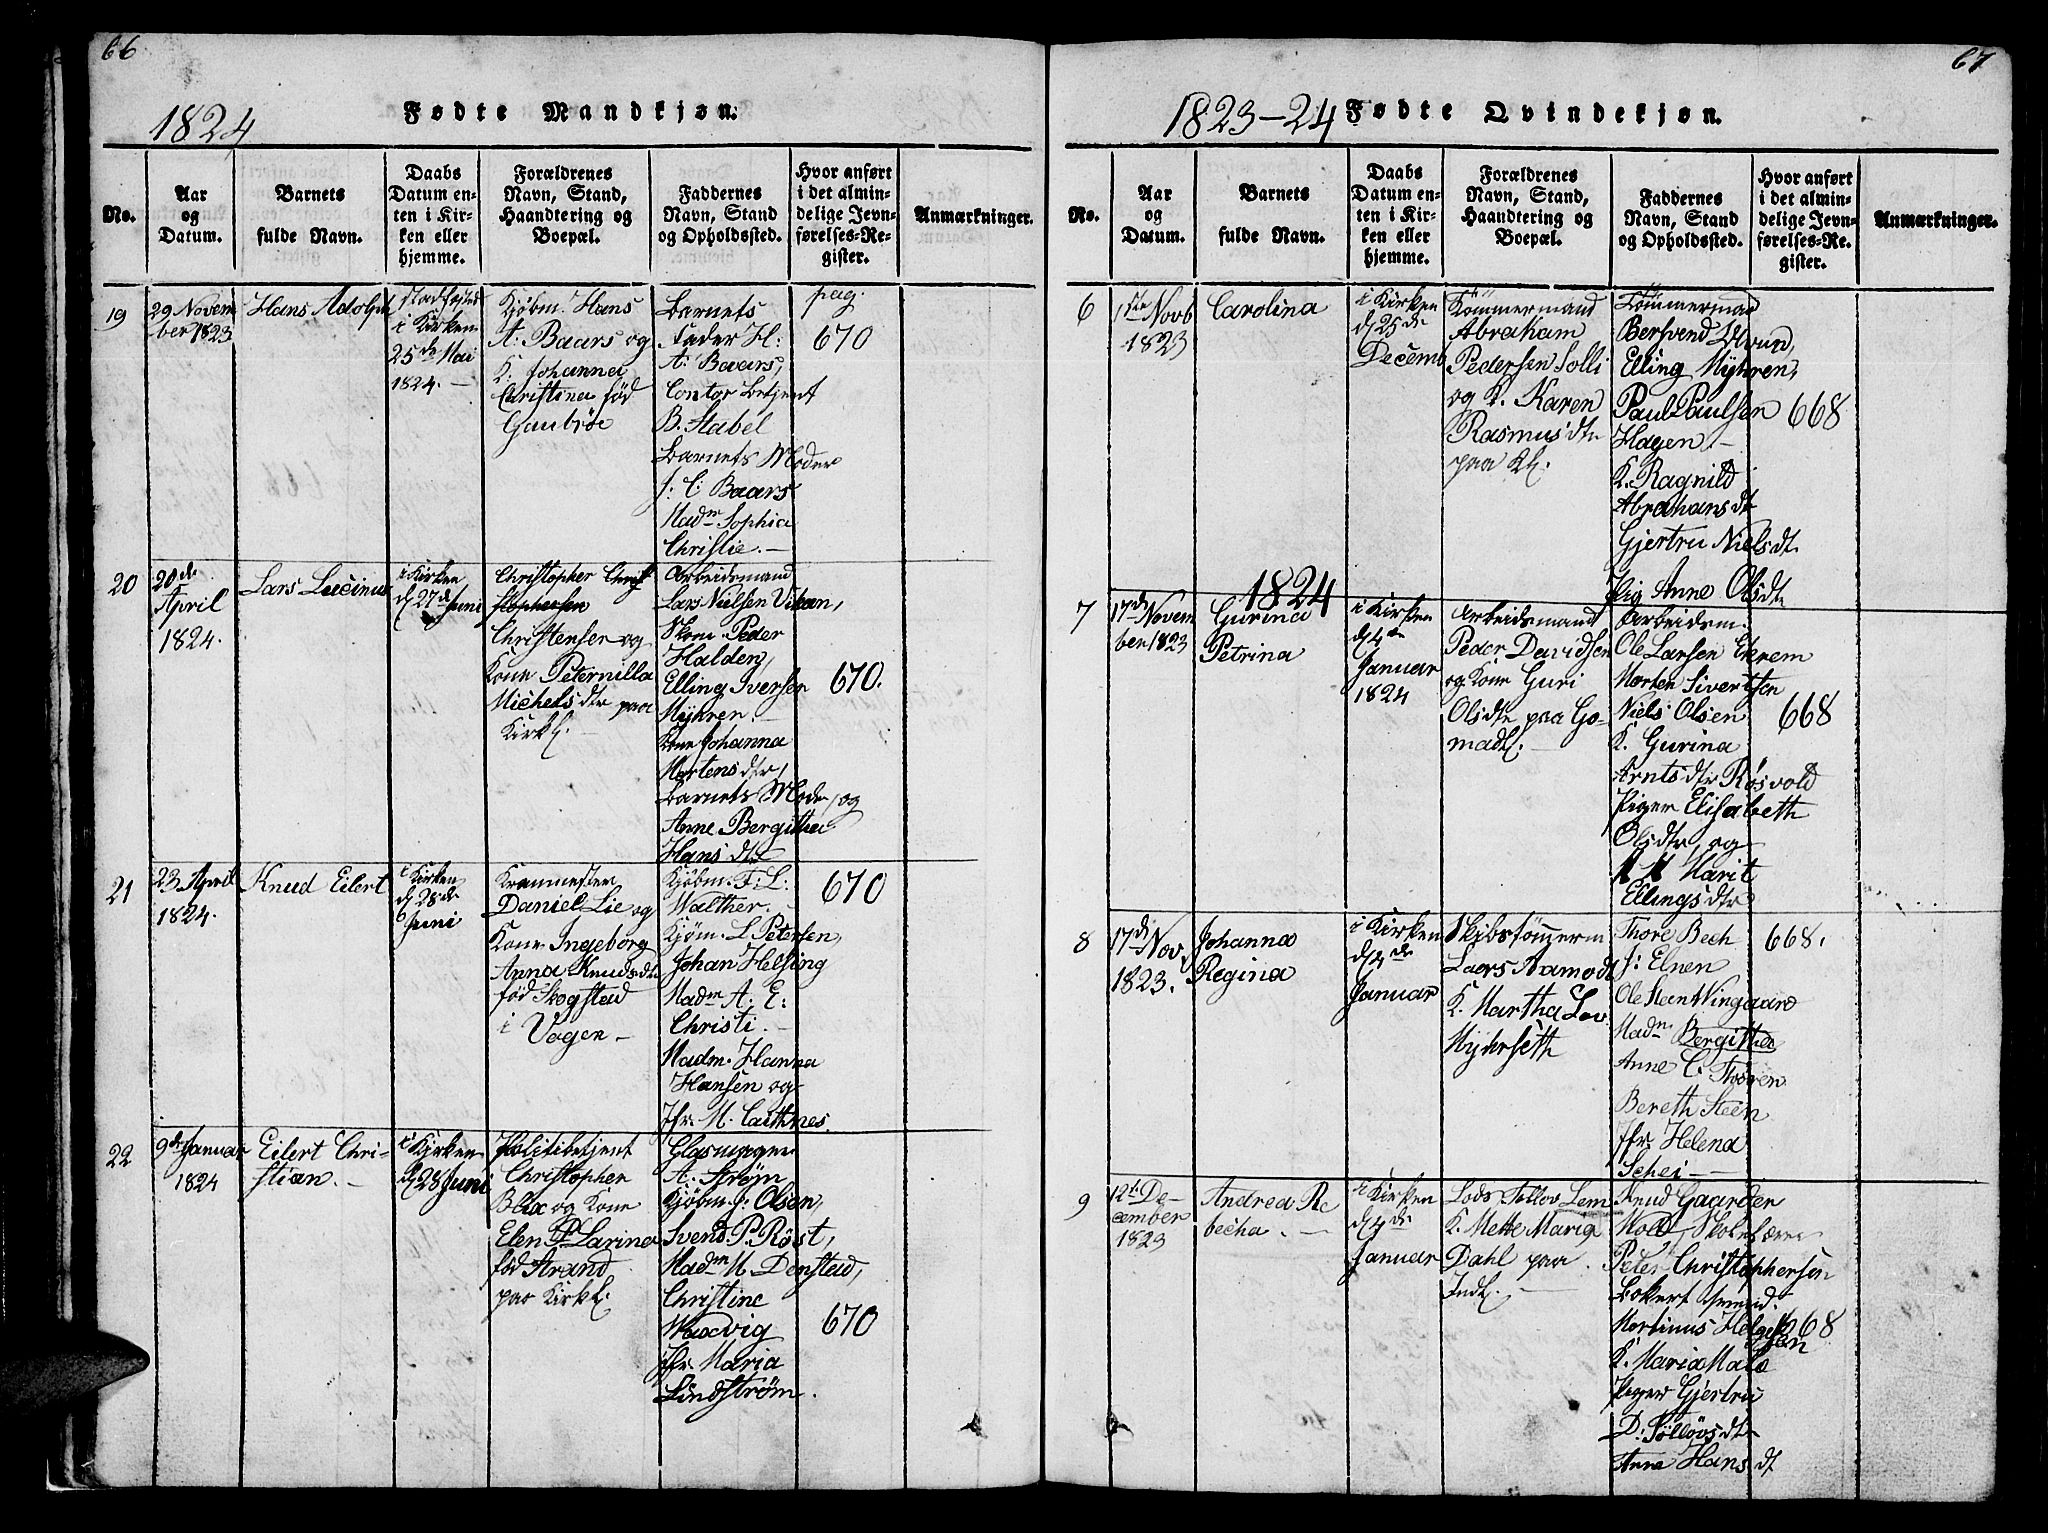 66
1824
Fødte Mandkjøn.
No.
Aar
og
Datum.
Barnets
fulde Navn.
Daabs
Datum en-
ten i Kir-
ken eller
hjemme.
Forældrenes
Navn, Stand,
Haandtering og
Boepæl.
Faddernes
Navn, Stand
og Opholdssted.
Hvor anført
i det almin-
delige Jevn-
førelses-Re-
gister.
Anmærkninger.
19
29 Novem
ber 1823
Hans Adolph
stadfæstet
i Kirken
25de Mai
1824.
Kjøbm. Hans
A: Baars og
K. Johanna
Christina fød
Barnets
Fader H:
A: Baars,
Contor Betjent
B. Stabel
Barnets Moder
J: C: Baars
Madm Sophia
Christie. –
pag.
670
20
20de
April
1824.
Lars Lucinus
i Kirken
d 27de
Juni
Christopher Christ
stophersen
Christensen og
Kone Peternilla
Michels dtr paa
Kirkl.
Arbeidsmand
Lars Nielsen Vikan,
Skom. Peder
Halden,
Elling Iversen
Myhren. –
Kone Johanna
Mortens dtr,
Barnets Moder, og
Anne Bergitha
Hans dtr
670.
21
23 April
1824.
Knud Eilert
i Kirken
d 28de
Juni
Daniel Lie og
Kone Ingeborg
Anna Knudsdtr
fød Skogstad
i Vagen –
Kjøbm. F: L:
Walther. –
Kjøm. L Petersen,
Johan Helsing
Madm A: E:
Christi. –
Madm. Hanna
Hansen og
Jfr. M. Caithnes.
670
22
9de Januar
1824
Eilert Chri-
stian. –
i Kirken
d 28 Juni
Politibetjent
Christopher
Blix og Kone
Elen P Larina
fød Strand
paa Kirkl.
Glasmager
A. Strøm
Kjøbm. J: Olsen,
Svend P. Røst,
Madm M Denstad,
Christine
Waxvig
Jfr. Maria
Lindstrøm.
670
67
1823-24
Fødte Qvindekjøn.
No.
Aar
og
Datum.
Barnets
fulde Navn.
Daabs
Datum en-
ten i Kir-
ken eller
hjemme.
Forældrenes
Navn, Stand,
Haandtering og
Boepæl.
Faddernes
Navn, Stand
og Opholdssted.
Hvor anført
i det almin-
delige Jevn-
førelses-Re-
gister.
Anmærkninger.
6
1ste Novb
1823
Carolina
i Kirken
d 25de
Decemb
Tömmermand
Abraham
Pedersen Solli
og K. Karen
Rasmus dtr
paa Kl.
Tömmermand
Elling Myhren,
Paul Paulsen
Hagen –
K. Ragnild
Abrahams dt
Gjertru Niels dt.
Pig Anne Olsdtr
668
1824
7
17de Novem
ber 1823
Gurina
Petrina
i Kirken
d 4de
Januar
1824
Arbeidsmand
Peder Davidsen
og Kone Guri
Olsdtr paa Go-
madl.
Arbeidsm.
Ole Larsen Ekrem
Morten Sivertsen
Niels Olsen
K. Gurina
Arntsdtr Røsvold
Piger Elisabeth
Olsdtr, og
Marit
Ellings dtr
668
8
17de Nov.
1823.
Johanna
Regina
i Kirken
d 4de
Januar
Skibstømerm
Lars Aamodt
K. Martha Lov.
Myhrseth
Thore Bech
J: Elnen
Ole Steen Wingaard
Madm Bergitha
Anne C: Thoren
Bereth Steen
Jfr. Helena
Schei –
668.
9
12te De-
cember
1823
Andrea Re
becha. –
i Kirken
d 4de
Januar
Lods Tollov Lem
K. Mette Maria
Dahl paa
Indl. –
Knud Gaarden
Mold, Skolelærer
Peter Christophersen
Mortinus Helge
sen
K. Maria Malo
Piger Gjertru
D: Töllövs dtr
Anne Hans dt
668